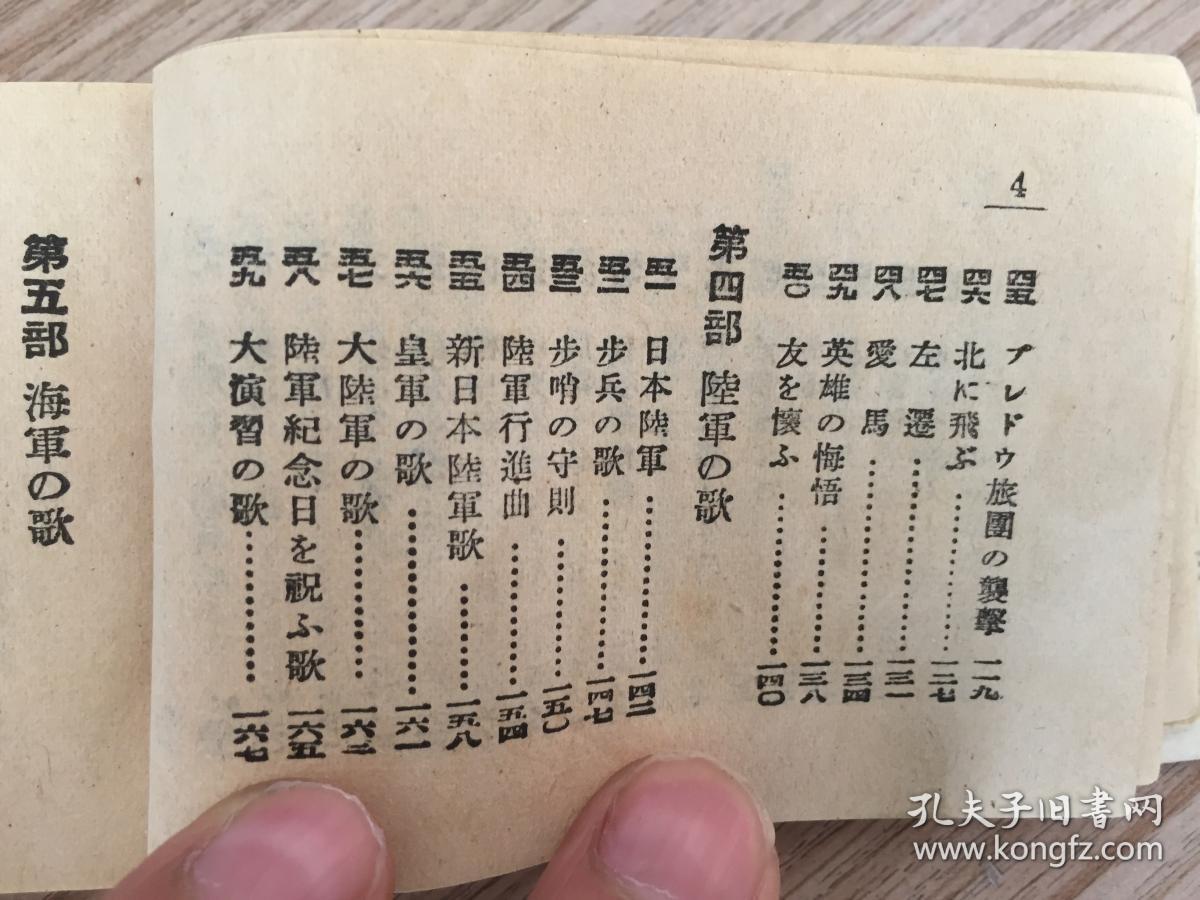 4
四五 プレドゥ旅團の襲擊 一一九
四六 北に飛ぶ…………一二七
四七 左遷…………一三一
四八 愛馬…………一三四
四九 英雄の悔悟…………一三八
五〇 友を懷ふ…………一四〇
第四部 陸軍の歌
五一 日本陸軍…………一四二
五二 步兵の歌…………一四七
五三 步哨の守則…………一五〇
五四 陸軍行進曲…………一五四
五五 新日本陸軍歌…………一五八
五六 皇軍の歌…………一六一
五七 大陸軍の歌…………一六三
五八 陸軍紀念日を祝ふ歌 一六五
五九 大演習の歌…………一六七
第五部 海軍の歌
孔夫子旧书网
www.kongfz.com